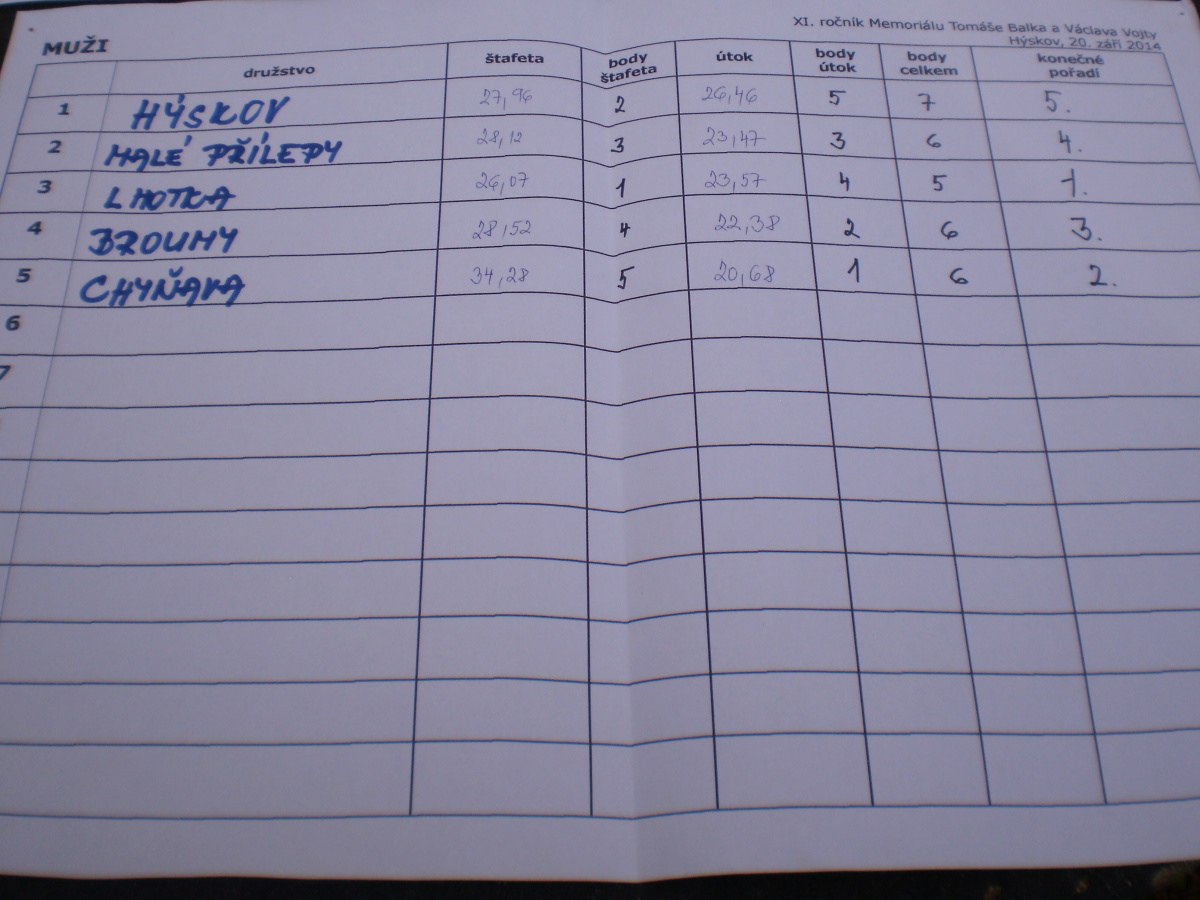 XI. ročník Memoriálu Tomáše Balka a Václava Vojty
Hýskov, 20. září 2014
MUŽI
družstvo štafeta body štafeta útok body útok body celkem konečné pořadí
1 HÝSKOV 27,96 2 26,46 5 7 5.
2 MALÉ PŘÍLEPY 28,12 3 23,47 3 6 4.
3 LHOTKA 26,07 1 23,57 4 5 1.
4 BROUMY 28,52 4 22,38 2 6 3.
5 CHYŇAVA 34,28 5 20,68 1 6 2.
6
7